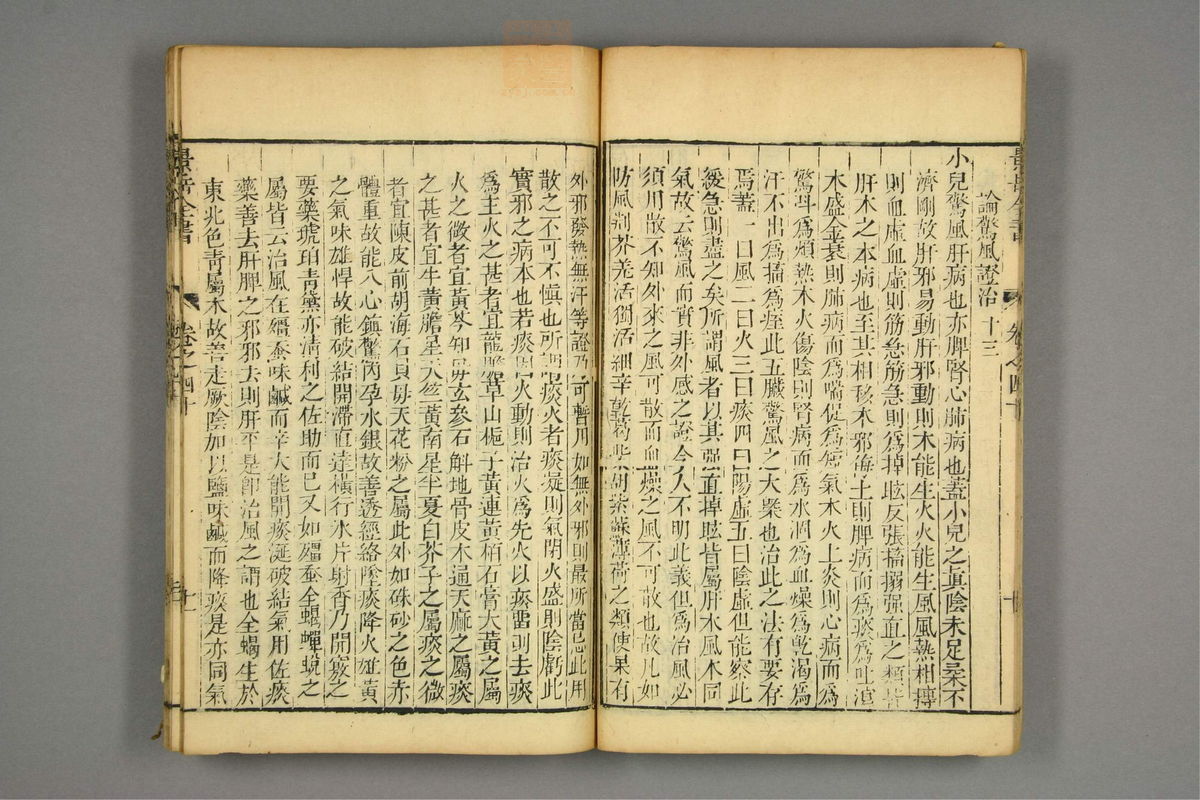 論驚風證治 十三
小兒驚風肝病也亦脾腎心肺病也蓋小兒之真陰未足柔不
濟剛故肝邪易動肝邪動則木能生火火能生風風熱相搏
則血虛血虛則筋急筋急則爲掉眩反張搐搦强直之類皆
肝木之本病也至其相移木邪侮土則脾病而爲痰爲吐瀉
木盛金衰則肺病而爲喘促爲短氣木火上炎則心病而爲
驚叫爲煩熱木火傷陰則腎病而爲水涸爲血燥爲乾渴爲
汗不出爲搐爲痙此五臟驚風之大槩也治此之法有要存
焉蓋一曰風二曰火三曰痰四曰陽虛五曰陰虛但能察此
緩急則盡之矣所謂風者以其强直掉眩皆屬肝木風木同
氣故云驚風而實非外感之證今人不明此義但爲治風必
須用散不知外來之風可散而血燥之風不可散也故凡如
防風荆芥羌活獨活細辛乾葛柴胡紫蘇薄荷之類使果有
外邪發熱無汗等證乃可暫用如無外邪則最所當忌此用
散之不可不慎也所謂痰火者痰凝則氣閉火盛則陰虧此
實邪之病本也若痰因火動則治火爲先火以痰留則去痰
爲主火之甚者宜龍膽草山梔子黃連黃栢石膏大黃之屬
火之微者宜黃芩知母玄參石斛地骨皮木通天麻之屬痰
之甚者宜牛黃膽星天竺黃南星半夏白芥子之屬痰之微
者宜陳皮前胡海石貝母天花粉之屬此外如硃砂之色赤
體重故能入心鎮驚内孕水銀故善透經絡墜痰降火雄黃
之氣味雄悍故能破結開滯直達横行氷片射香乃開竅之
要藥琥珀青黛亦清利之佐助而已又如殭蠶全蠍蟬蛻之
屬皆云治風在殭蠶味鹹而辛大能開痰涎破結氣用佐痰
藥善去肝脾之邪邪去則肝平是卽治風之謂也全蠍生於
東北色青屬木故善走厥陰加以鹽味鹹而降痰是亦同氣
景岳全書
卷之四十